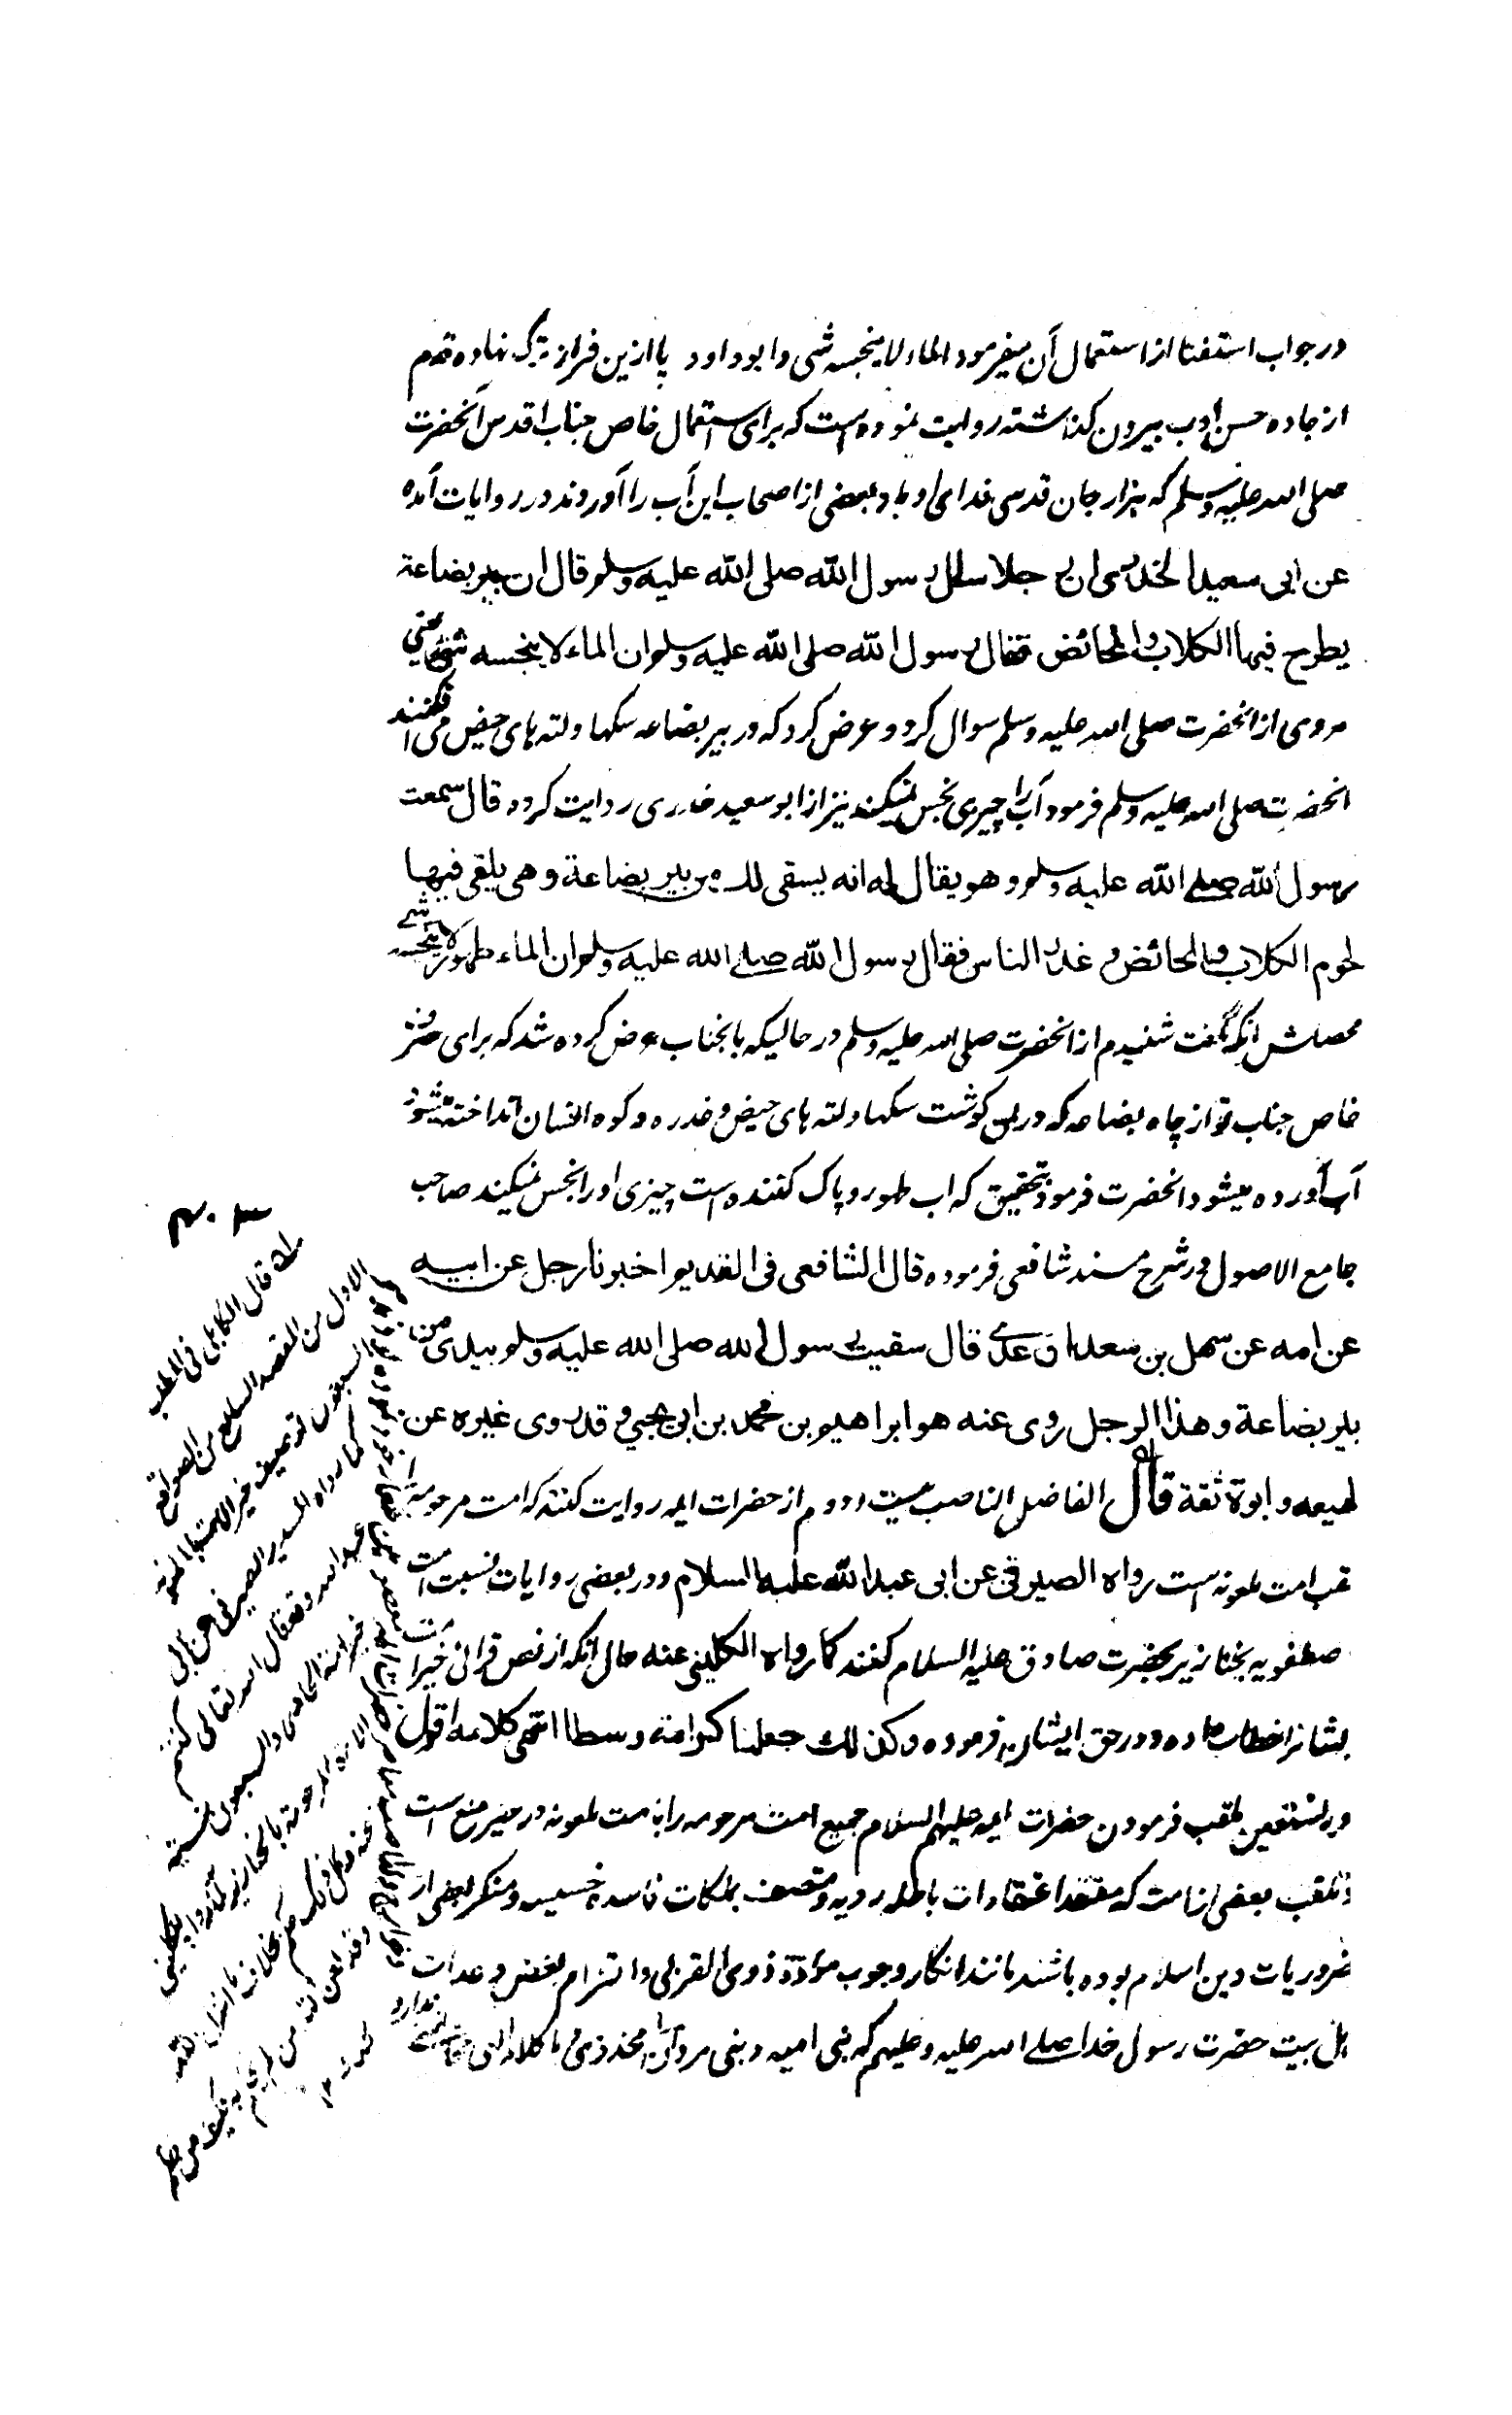 در جواب استفتا از استعمال آن میفرمود الماء لا ینجسه شی و ابو داود پا ازین فراز ترک نهاده قدم
از جاده حسن ادب بیرون گذاشته روایت نموده است که برای استعمال خاص جناب اقدس آنحضرت
صلی الله علیه وسلم که هزار جان قدسی فدای او باد بعضی از اصحاب این آب را آوردند در روایات آمده
عن ابی سعید الخدری ان رجلا سال رسول الله صلی الله علیه وسلم قال ان بیر بضاعة
یطرح فیها الکلاب والمحائض فقال رسول الله صلی الله علیه وسلم ان الماء لا ینجسه شئ یعنی
مردی از آنحضرت صلی الله علیه وسلم سوال کرد و عرض کرد که در بیر بضاعه سکها و لته های حیض می افکنند
انحضرت صلی الله علیه وسلم فرمود آب را چیزی نجس نمیکند نیز از ابو سعید خدری روایت کرده قال سمعت
رسول الله صلی الله علیه وسلم وهو یقال له انه یسقی لک من بیر بضاعة وهی یلقی فیها
لحوم الکلاب والمحائض و عذر الناس فقال رسول الله صلی الله علیه وسلم ان الماء طهور لا ینجسه شی
محصلش انکه گفت شنیدم از انحضرت صلی الله علیه وسلم در حالیکه بانجناب عرض کرده شد که برای
خاص جناب تو از چاه بضاعه که در ان کوشت سکها و لته های حیض و عذره و کوه انسان انداخته میشود
آب آورده میشود انحضرت فرمود بتحقیق که اب طهور و پاک کننده است چیزی او را نجس نمیکند صاحب
جامع الاصول در شرح مسند شافعی فرموده قال الشافعی فی القدیم اخبرنا رجل عن ابیه
عن امه عن سهل بن سعد الساعدی قال سقیت رسول الله صلی الله علیه وسلم بیدی من
بیر بضاعة وهذا الرجل روی عنه هو ابراهیم بن محمد بن ابی یحیی و قد روی غیره عن
لهیعه و ابوه ثقة قال الفاضل الناصب بیست و دوم از حضرات ایمه روایت کنند که امت مرحومه را
لقب امت ملعونه است رواه الصیرفی عن ابی عبد الله علیه السلام و در بعضی روایات نسبت امت
مصطفویه بخنازیر بحضرت صادق علیه السلام کنند کما رواه الکلینی عنه حال انکه از نص قرانی خیر امت
بشانرا خطاب داده و در حق ایشان فرموده وکذلك جعلناکم امة وسطا انتهی کلامه اقول
وبه نستعین ملقب فرمودن حضرات ایمه علیهم السلام جمیع امت مرحومه را بامت ملعونه در حیز منع است
و تلقب بعضی از امت که معتقد اعتقادات باطله ردیه و متصف بملکات فاسده خسیسه و منکر بعضی از
ضروریات دین اسلام بوده باشند مانند انکار وجوب مودة ذوی القربی و التزام بغض و عداوت
اهل بیت حضرت رسول خدا صلی الله علیه و علیهم که بنی امیه و بنی مروان
له قال الکابلی فی المطلب
الاول من المقصد السابع من الصواقع
کما رواه السدیر الصیرفی عن ابی
عبد الله وقد قال الله تعالی کنتم
خیر امة الحادی والسبعون نسبتهم
الامة المرحومة بالخنازیر کما رواه الکلینی